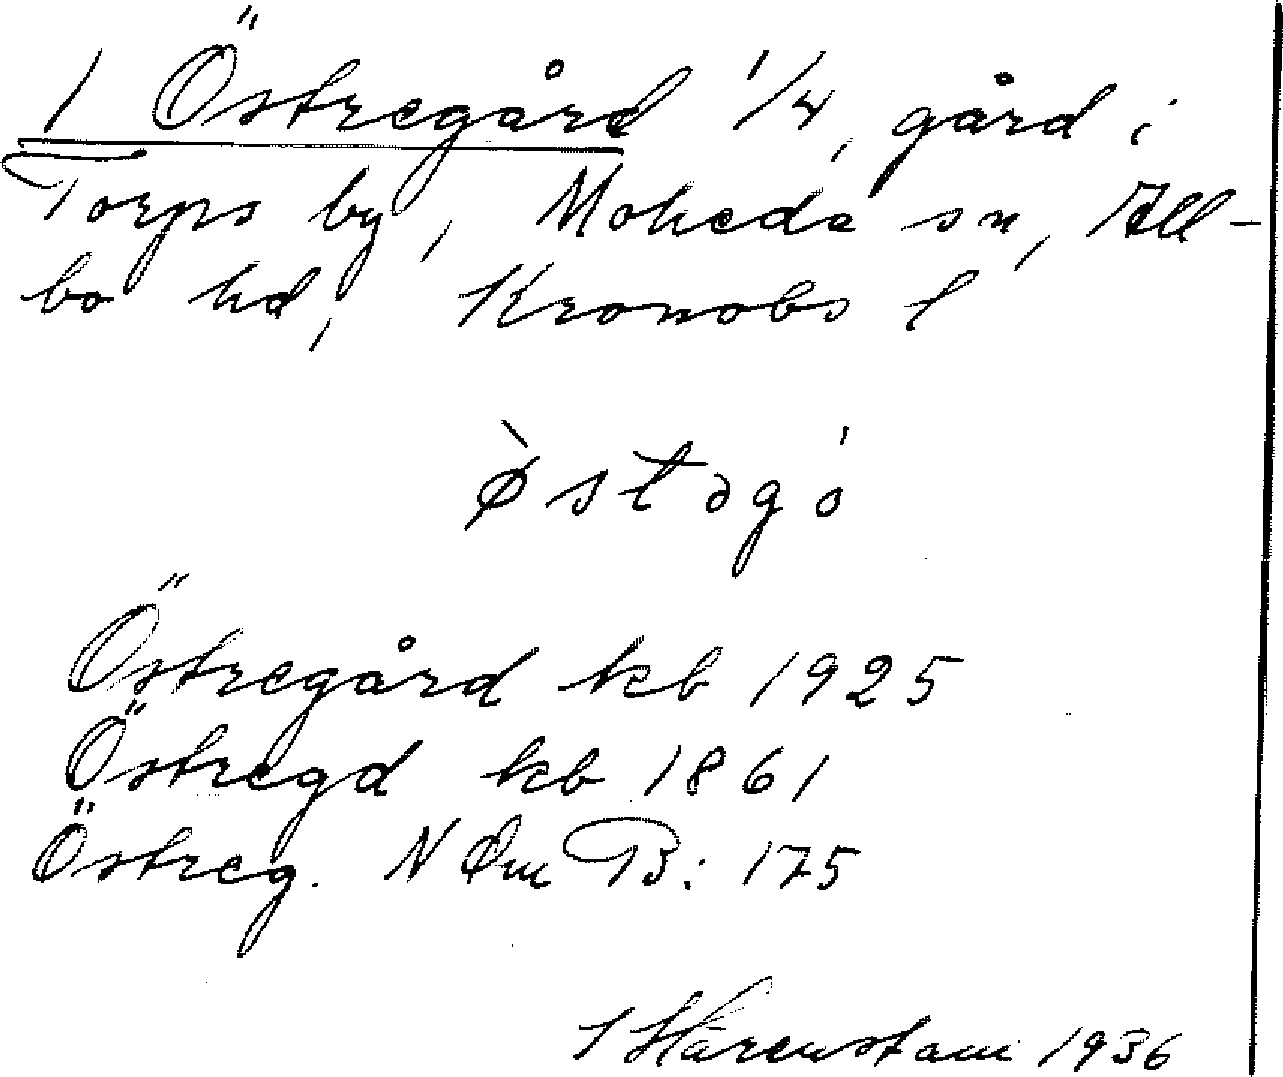 1 Östregård 1/4, gård i
Torps by, Moheda sn, All-
bo hd, Kronobs l
ø̀stəgó
Östregård kb 1925
Östregd kb 1861
Östreg. N Öm B: 175
S Härenstam 1936